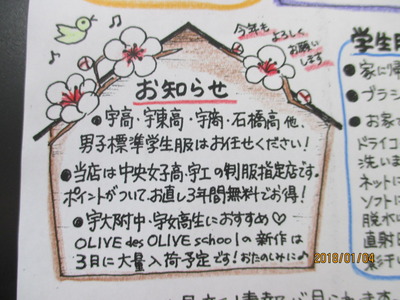 今年も
よろしく
お願い
します
お知らせ
●宇高・宇東高・宇商・石橋高 他、
男子標準学生服はお任せください!
●当店は中央女子高・宇工の制服指定店です。
ポイントがついて、お直し3年間無料でお得!
●宇大附中・宇女高生におすすめ♡
OLIVE des OLIVE schoolの新作は
3月に大量入荷予定です!おたのしみに♪
学生服
●家に帰
●ブラシ
●お家で
ドライコ
洗いま
ネットに
ソフトに
脱水し
直射日
2018/01/04